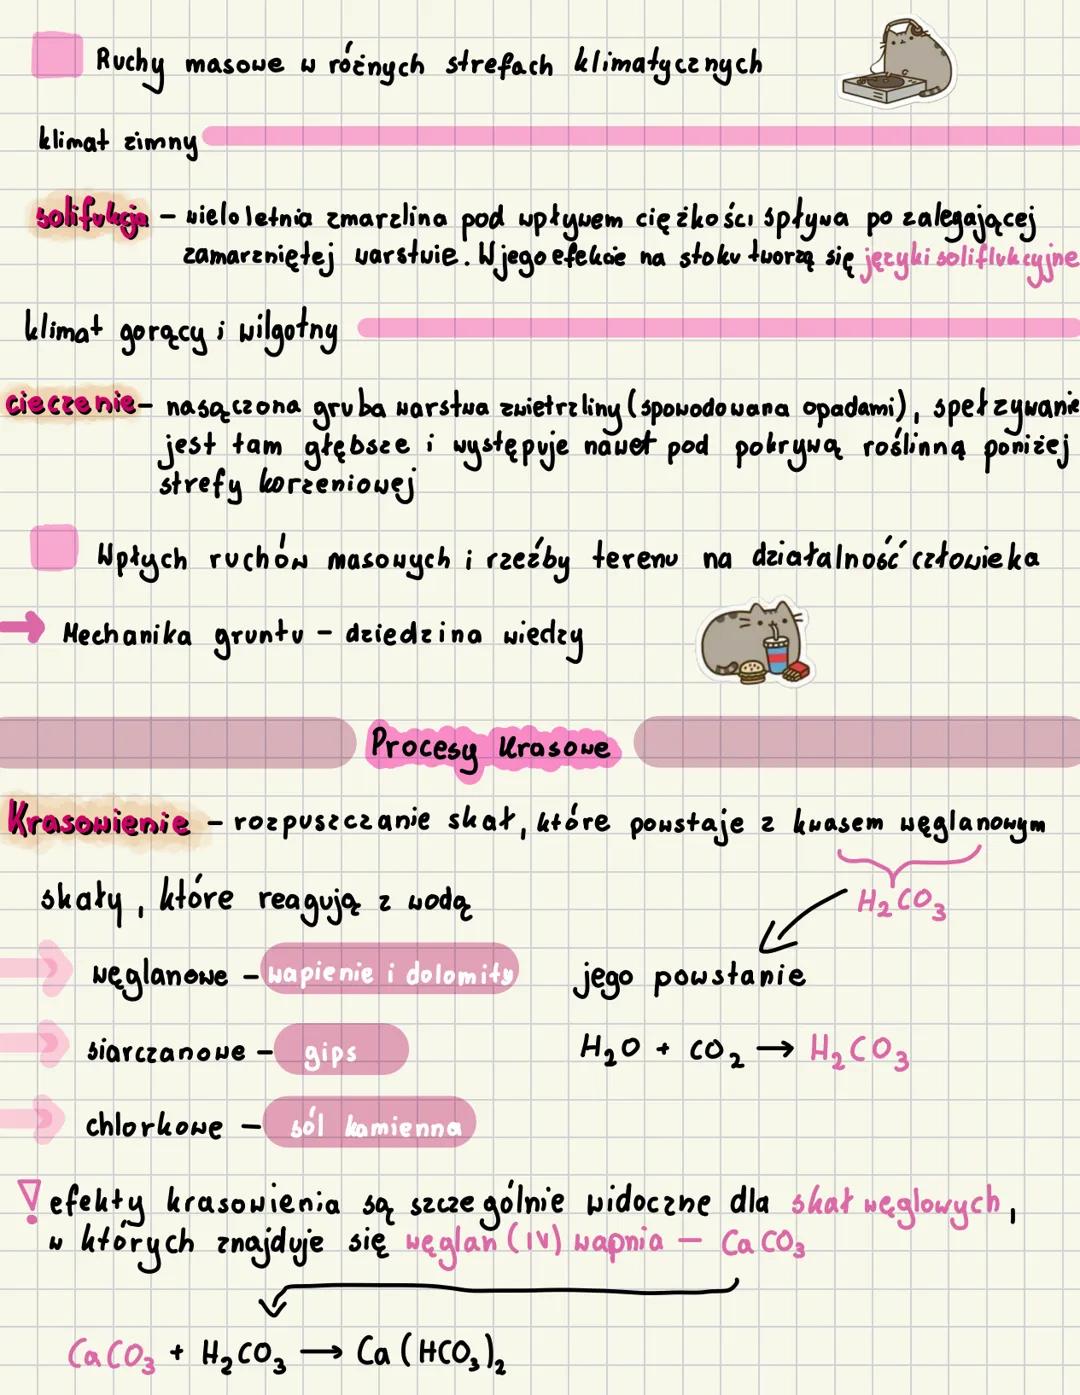 Ruchy masowe w różnych strefach klimatycznych
klimat zimny
solifukcja – wieloletnia zmarzlina pod wpływem ciężkości spływa po zalegającej
zamarzniętej warstwie. W jego efekcie na stoku tworzą się języki soliflukcyjne
klimat gorący i wilgotny
cieczenie – nasączona gruba warstwa zwietrzliny (spowodowana opadami), spełzywanie
jest tam głębsze i występuje nawet pod pokrywą roślinną poniżej
strefy korzeniowej
Wpłych ruchów masowych i rzeźby terenu na działalność człowieka
Mechanika gruntu – dziedzina wiedzy
Procesy Krasowe
Krasowienie – rozpuszczanie skał, które powstaje z kwasem węglanowym
skały, które reagują z wodą
H₂CO₃
węglanowe – wapienie i dolomity
jego powstanie
siarczanowe – gips
H₂O + CO₂ → H₂CO₃
chlorkowe – sól kamienna
! efekty krasowienia są szczególnie widoczne dla skał węglowych,
w których znajduje się węglan (IV) wapnia – CaCO₃
CaCO₃ + H₂CO₃ → Ca(HCO₃)₂